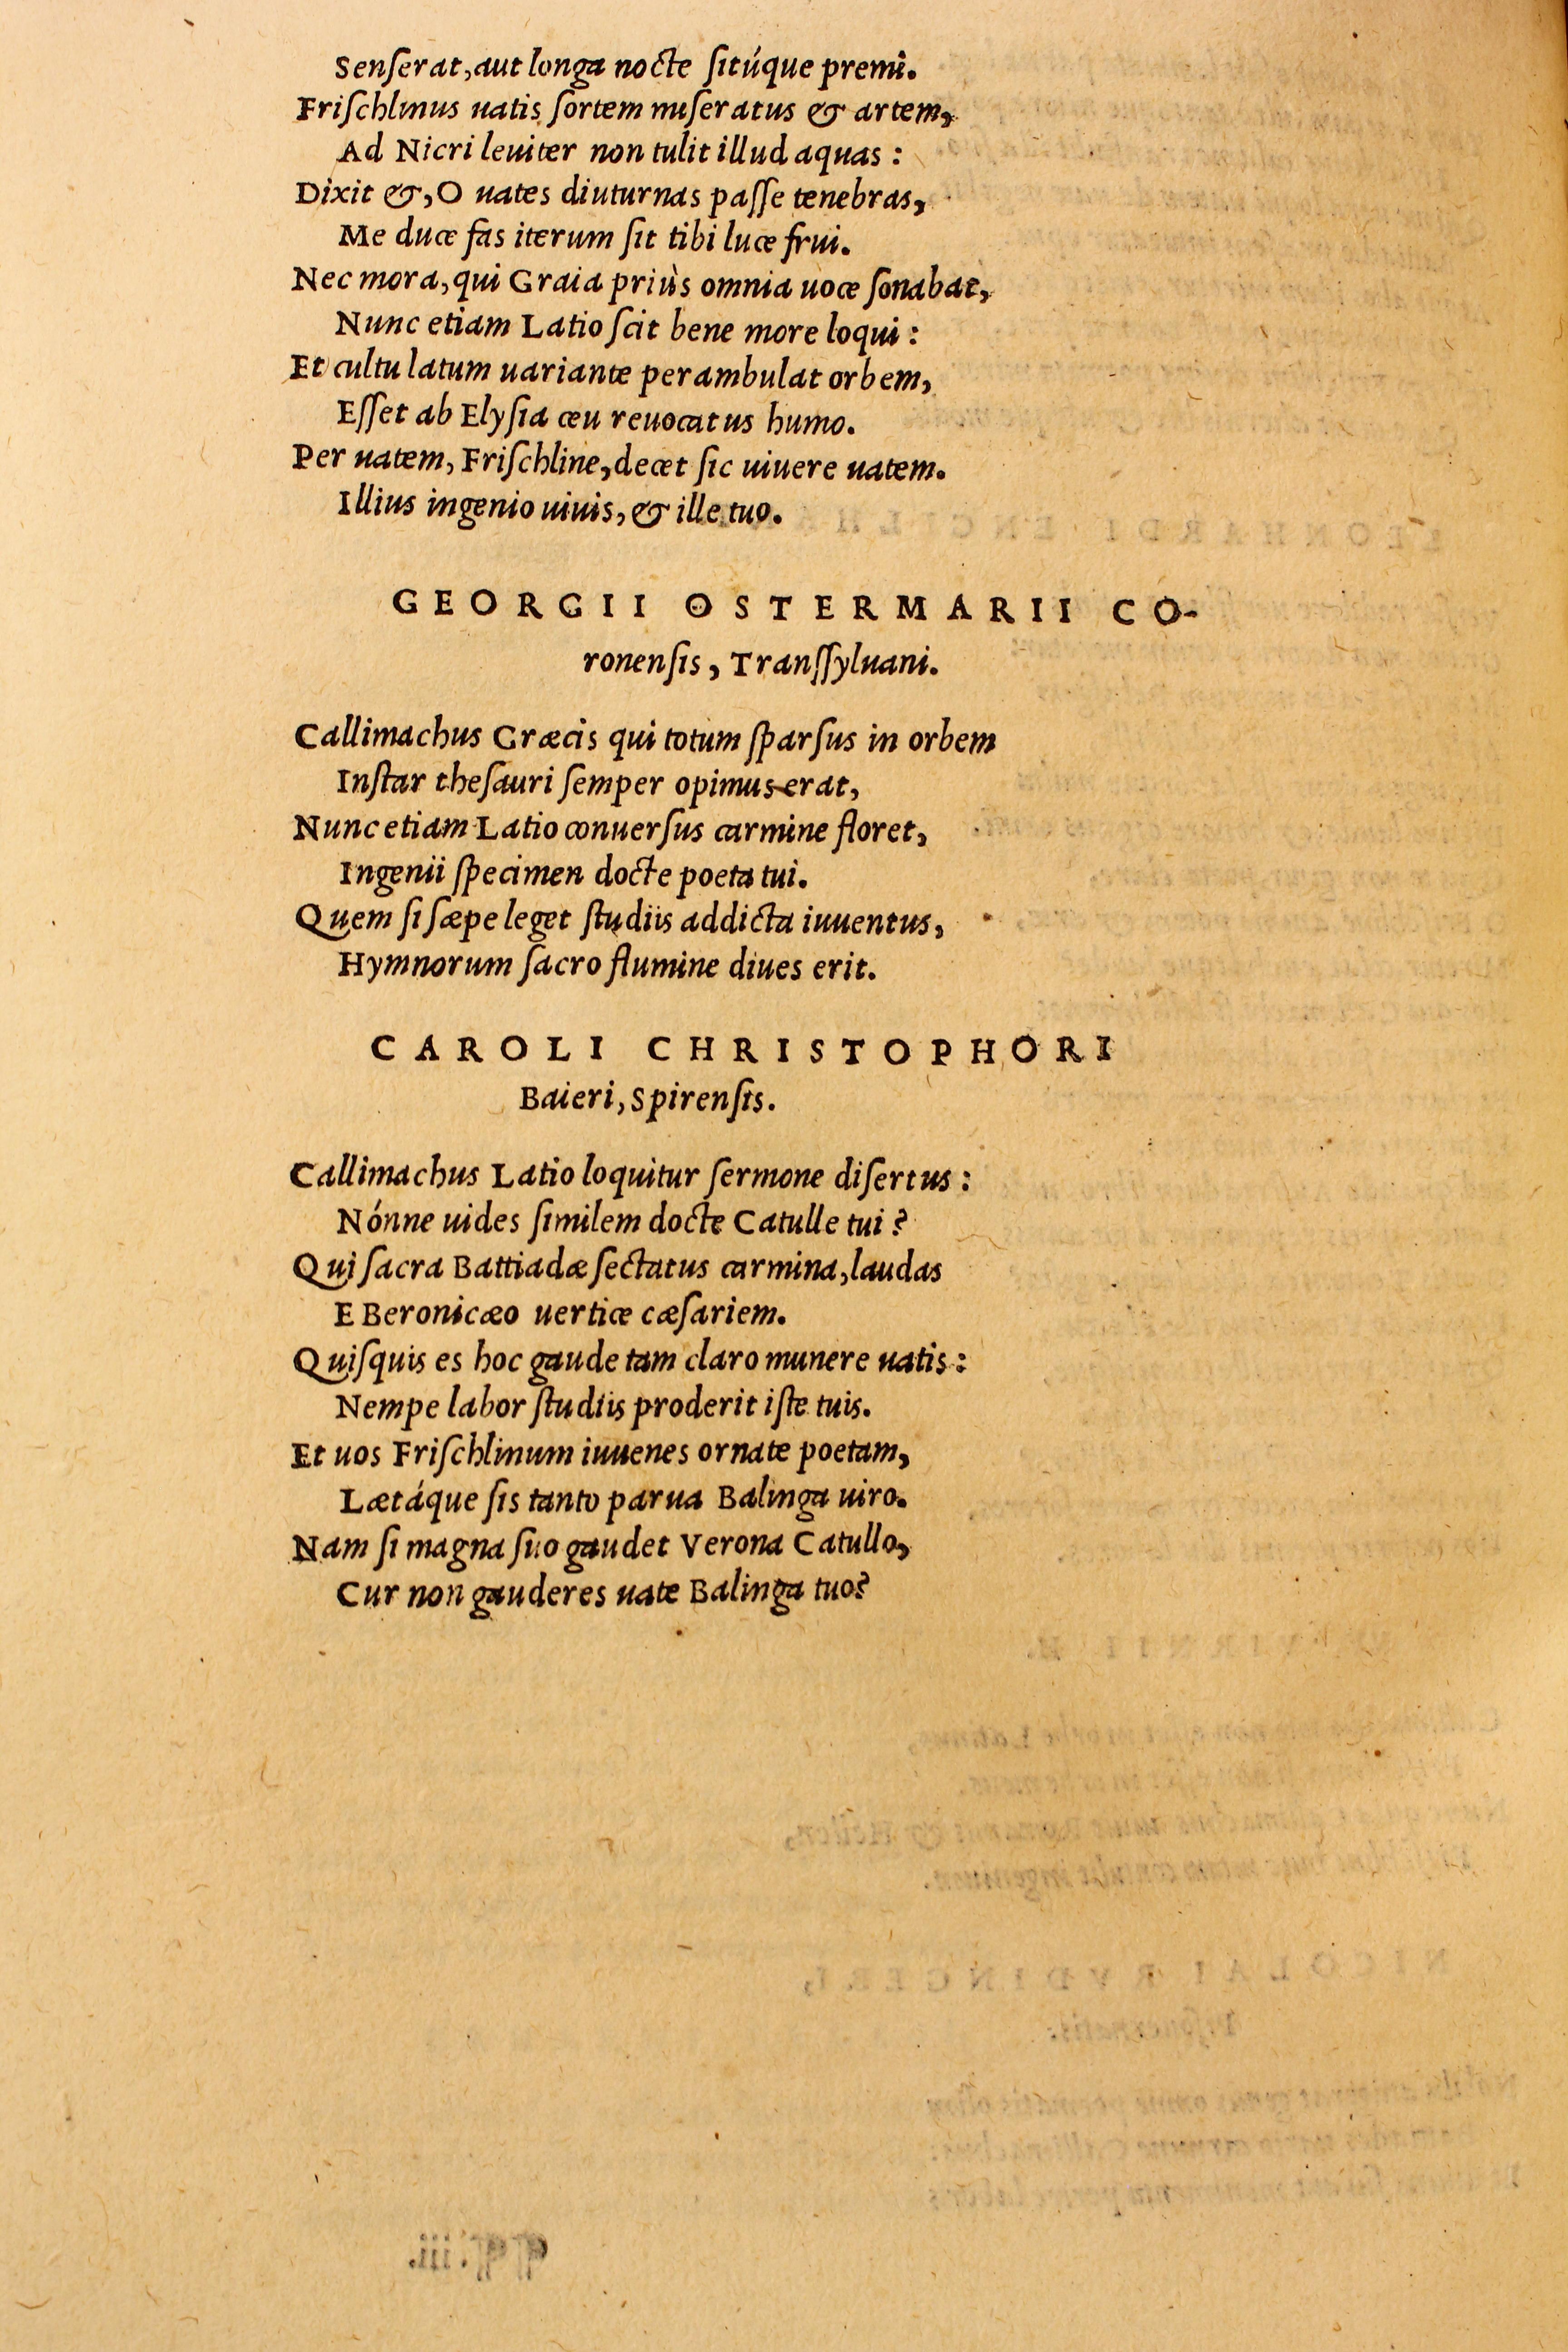 Senſerat, aut longa nocte ſitúque premi.
Friſchlinus uatis ſortem miſeratus & artem,
Ad Nicri leuiter non tulit illud aquas :
Dixit &, O uates diuturnas paſſe tenebras,
Me duce fas iterum ſit tibi luce frui.
Nec mora, qui Graia priùs omnia uoce ſonabat,
Nunc etiam Latio ſcit bene more loqui :
Et cultu latum uariante perambulat orbem,
Eſſet ab Elyſia ceu reuocatus humo.
Per uatem, Friſchline, decet ſic uiuere uatem.
Illius ingenio uiuis, & ille tuo.
GEORGII OSTERMARII CO-
ronenſis, Tranſſyluani.
Callimachus Græcis qui totum ſparſus in orbem
Inſtar theſauri ſemper opimus erat,
Nunc etiam Latio conuerſus carmine floret,
Ingenii ſpecimen docte poeta tui.
Quem ſi ſæpe leget ſtudiis addicta iuuentus,
Hymnorum ſacro flumine diues erit.
CAROLI CHRISTOPHORI
Baieri, Spirenſis.
Callimachus Latio loquitur ſermone diſertus :
Nónne uides ſimilem docte Catulle tui ?
Qui ſacra Battiadæ ſectatus carmina, laudas
E Beronicæo uertice cæſariem.
Quiſquis es hoc gaude tam claro munere uatis :
Nempe labor ſtudiis proderit iſte tuis.
Et uos Friſchlinum iuuenes ornate poetam,
Lætáque ſis tanto parua Balinga uiro.
Nam ſi magna ſuo gaudet Verona Catullo,
Cur non gauderes uate Balinga tuo?